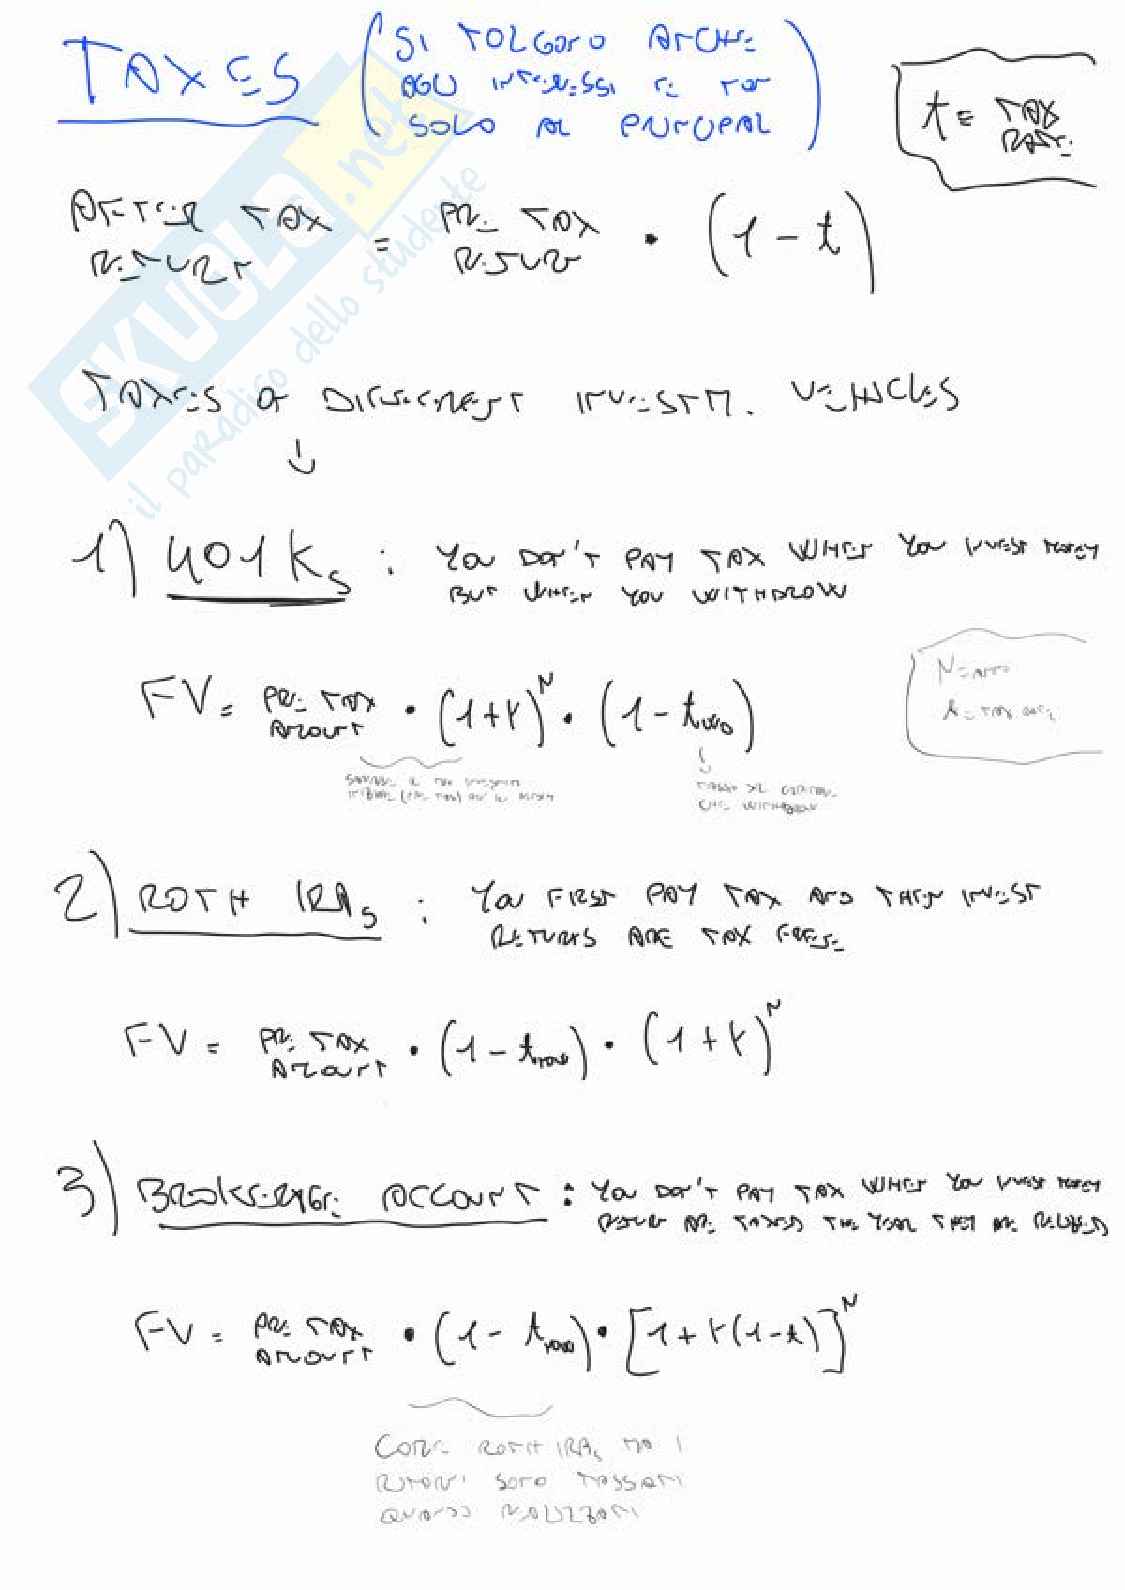 TAXES (SI TOLGONO ANCHE
AGLI INTERESSI E NON
SOLO AL PRINCIPAL)
t = TAX
RATE
AFTER TAX
RESULT = PRE TAX
RESULT • (1 - t)
TAXES OF DIFFERENT INVESTM. VEHICLES
↓
1) 401Ks : YOU DON'T PAY TAX WHEN YOU INVEST MONEY
BUT WHEN YOU WITHDROW
FV = PRE TAX
AMOUNT • (1+r)^N • (1 - t)
N = ANNO
t = TAX RATE
CHE WITHDROW
2) ROTH IRAs : YOU FIRST PAY TAX AND THEN INVEST
RETURNS ARE TAX FREE
FV = PRE TAX
AMOUNT • (1 - t now) • (1 + r)^N
3) BROKERAGE ACCOUNT : YOU DON'T PAY TAX WHEN YOU INVEST MONEY
ARE TAXED THE YEAR THEY ARE
FV = PRE TAX
AMOUNT • (1 - t now) • [1 + r(1 - t)]^N
COME ROTH IRAs MA I
RITORNI SONO TASSATI
QUANDO REALIZZATI
SKUOLA.net
il paradiso dello studente